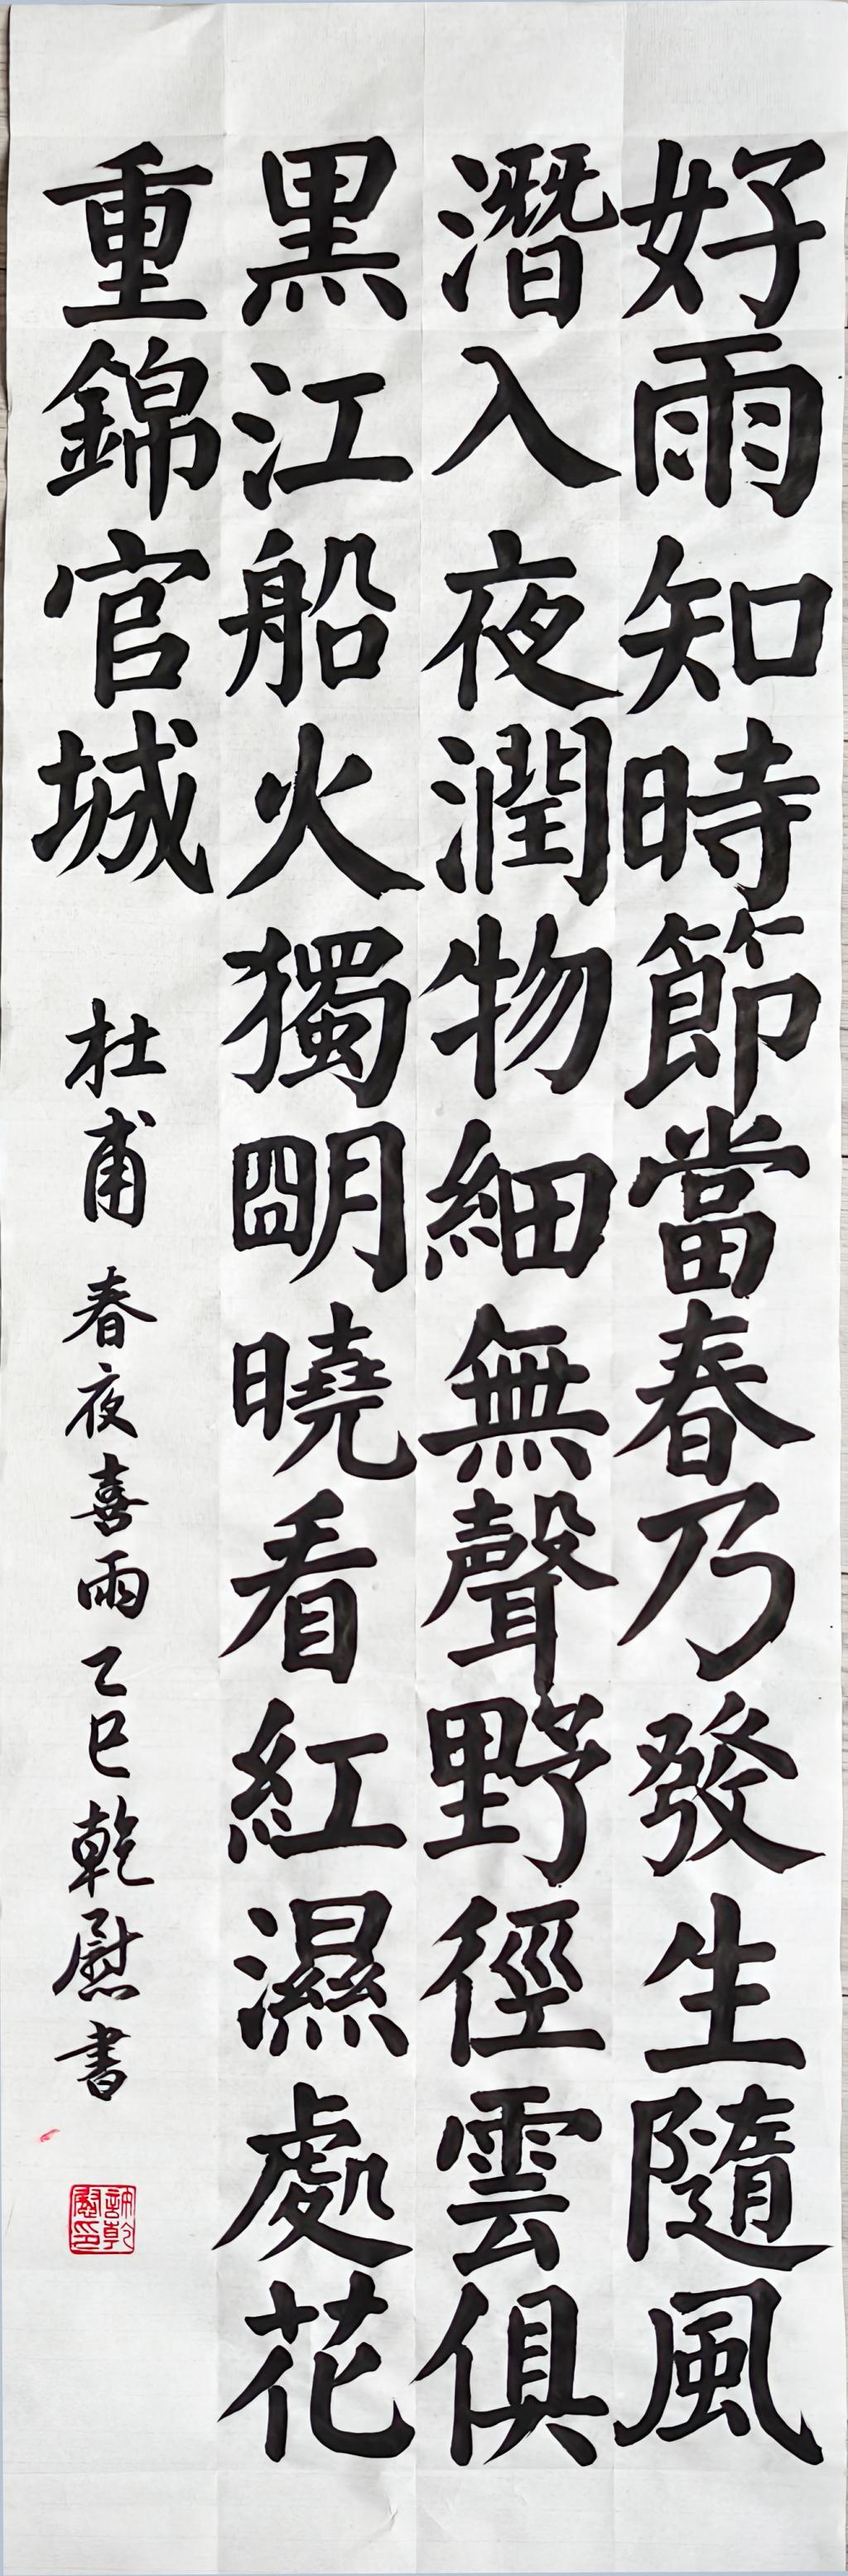 好雨知時節當春乃發生隨風
潛入夜潤物細無聲野徑雲俱
黑江船火獨明曉看紅濕處花
重錦官城
杜甫春夜喜雨乙巳乾慰書